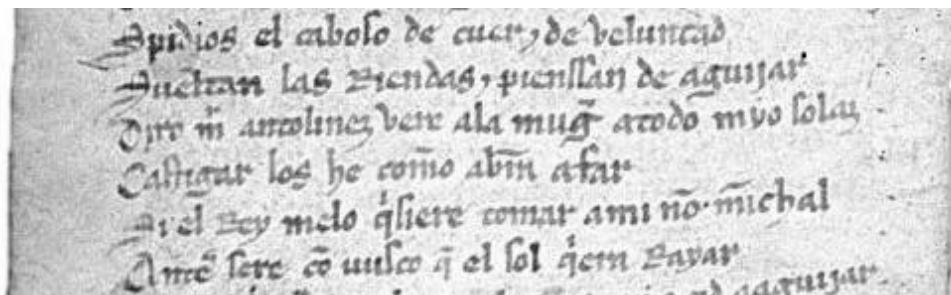 Spidios el caboso de cuer ⁊ de veluntad
Sueltan las Riendas ⁊ pienssan de aguijar
Dixo m̃ antolinez vere ala mug̃ atodo myo solaz
Castigar los he com̃o abrã afar
Si el Rey melo q̃siere tomar ami nõ minchal
Antes sere cõ uusco q̃ el sol q̃era Rayar
aguijar